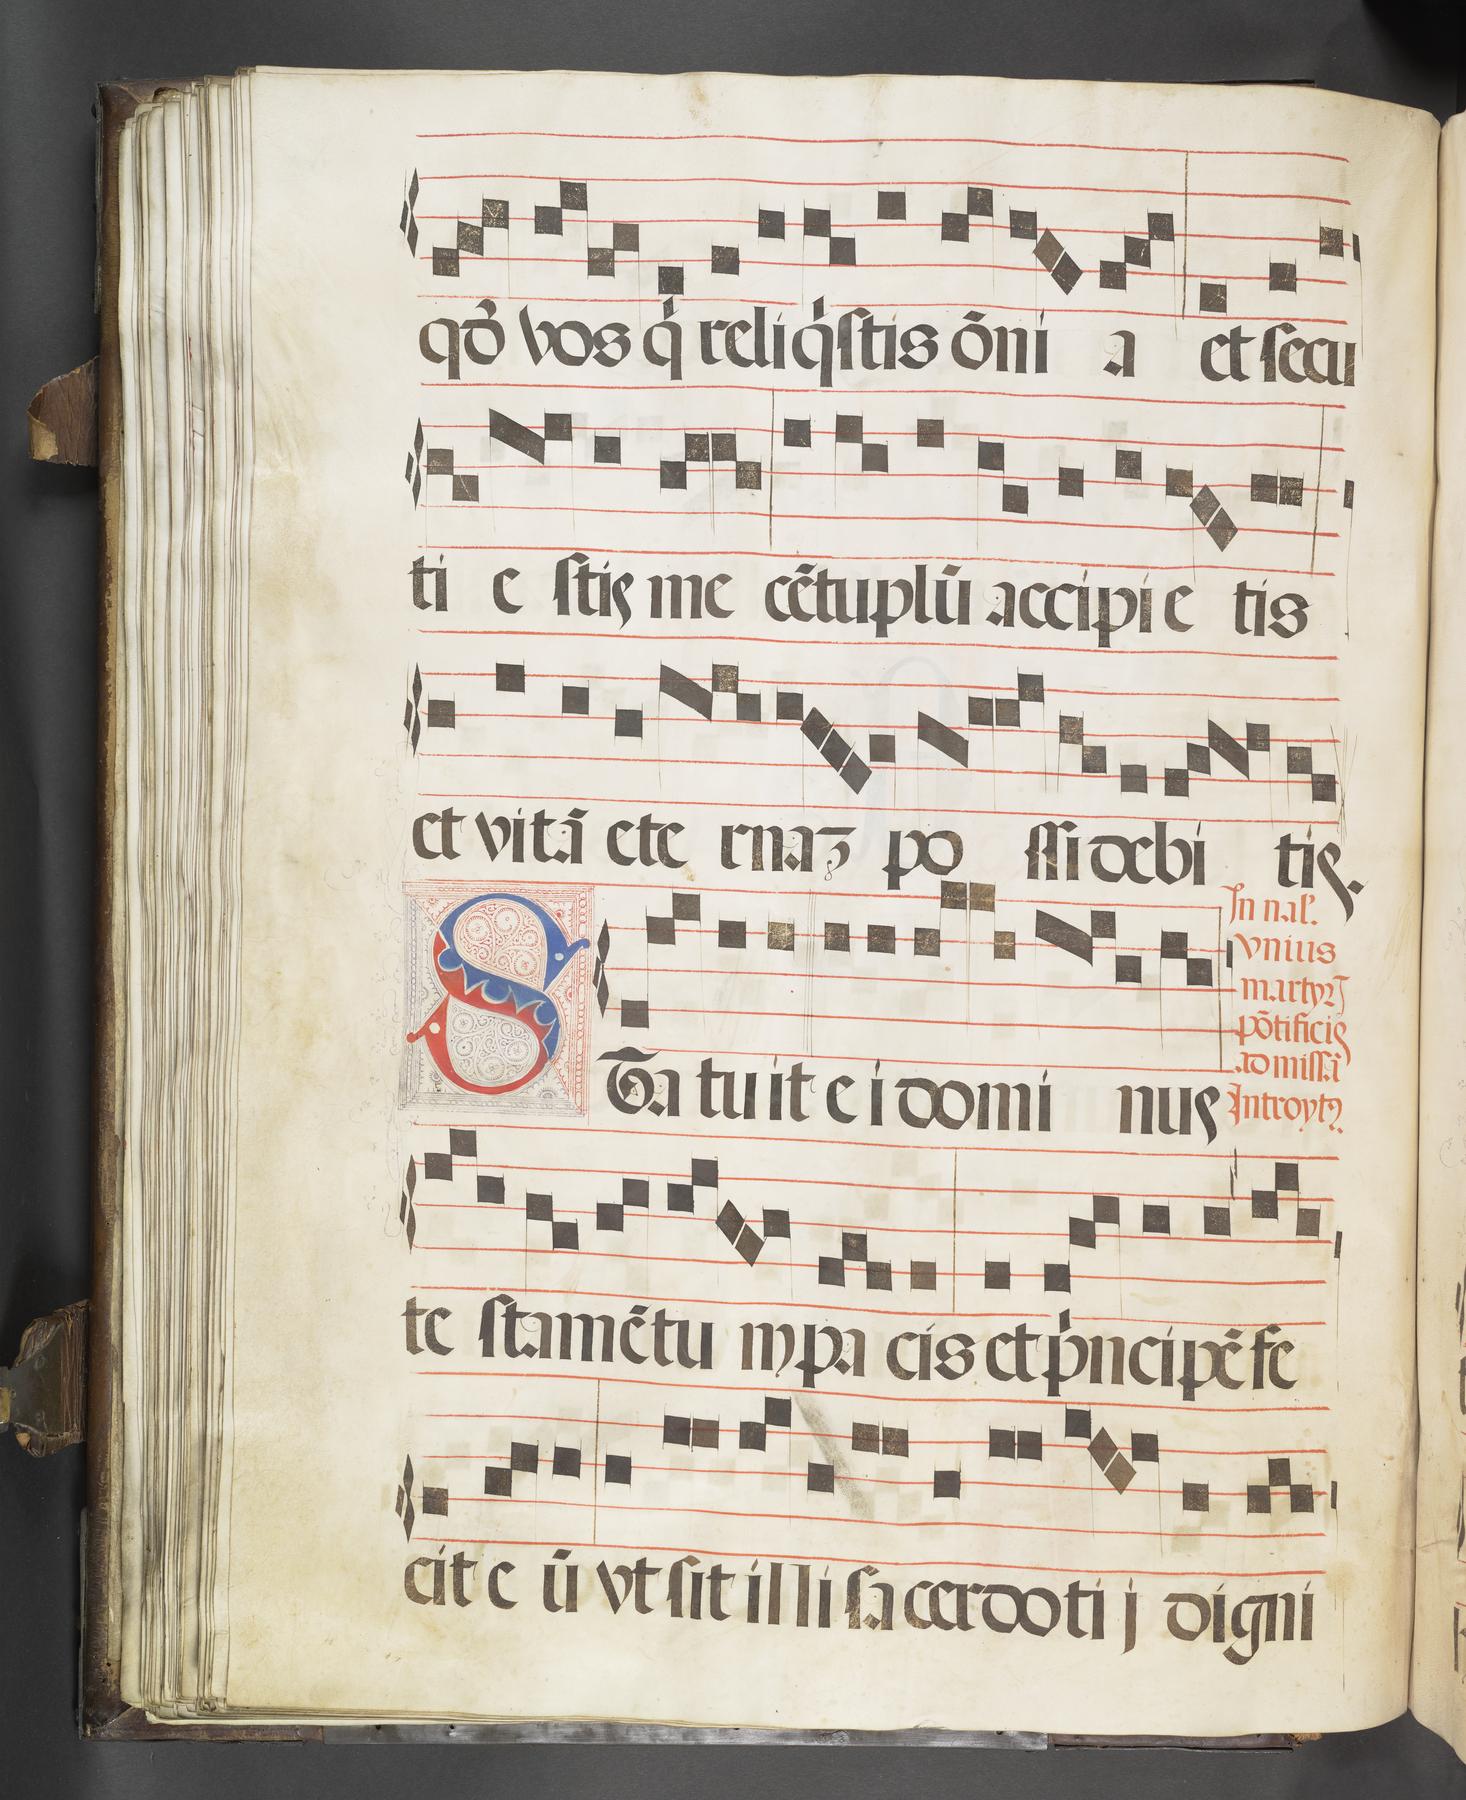 qd̄ vos q̇ reliq̇stis ōni a et secu
ti e stis me cētuplū accipi e tis
et vitā ete rnaꝫ po ssi debi tis.
In nał.
vnius
martyrꝭ
pōtificis
ad missā
Introytꝰ.
STa tu it e i domi nus
te stamētu m pa cis et ṗncipē fe
cit e ū vt sit il li sa cerdoti j digni